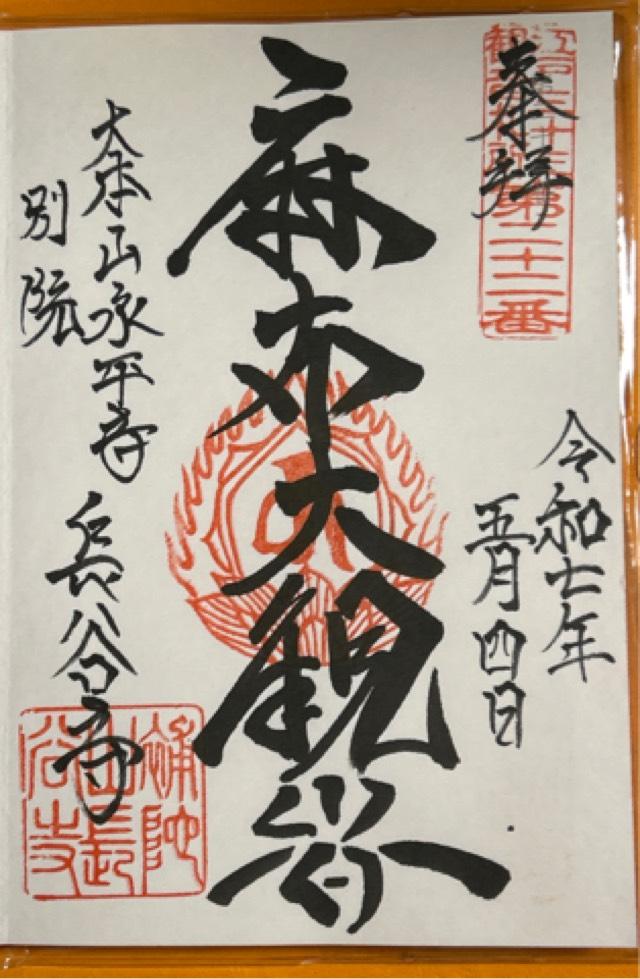 奉拝
江戸三十三
観音札所第二十二番
令和七年
五月四日
麻布大観音
大本山永平寺
別院
長谷寺
補陀
山長
谷寺